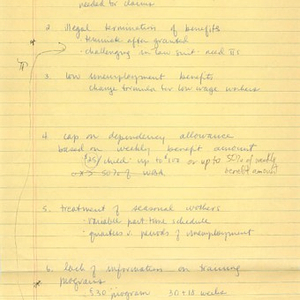 needed for claims
2. Illegal termination of benefits
terminate after granted
- challenging in law suit - need π's
3. low unemployment benefits
change formula for low wage workers
4. cap on dependency allowance
based on weekly benefit amount
($25/child up to or up to 50% of weekly benefit amount)
50% of WBA
5. treatment of seasonal workers
- variable part time schedule
- quarters v. periods of unemployment
6. lack of information on training
programs
§30 program 30+18 weeks